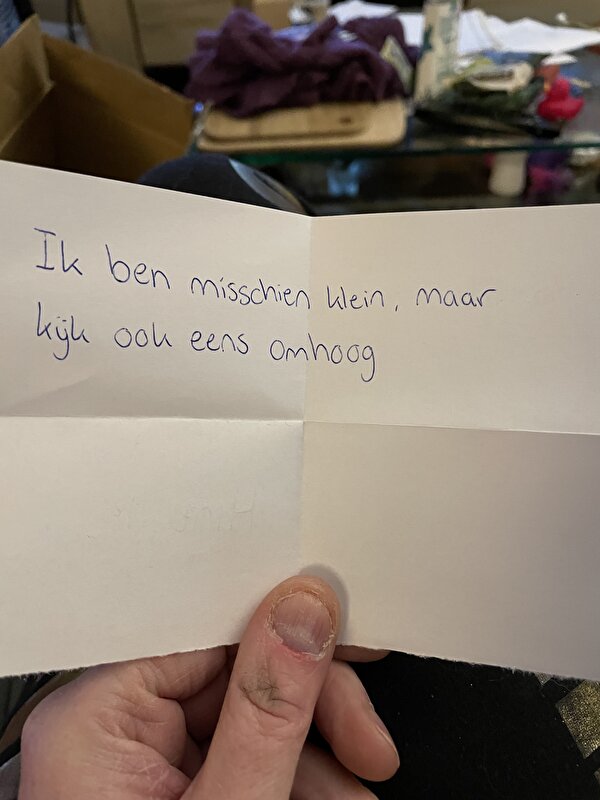 Ik ben misschien klein, maar
kijk ook eens omhoog